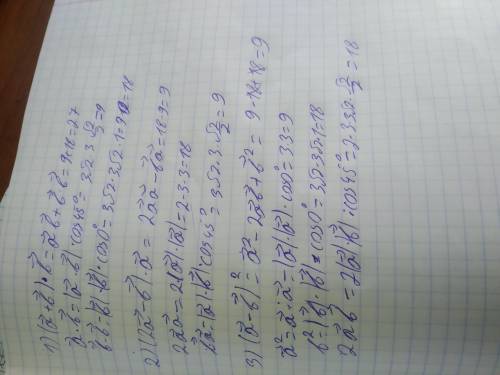 1) (a⃗+b⃗)·b⃗ = a⃗b⃗+b⃗·b⃗ = 9+18=27
a⃗·b⃗ = |a⃗|·|b⃗|·cos45° = 3√2·3·√2/2=9
b⃗·b⃗ = |b⃗|·|b⃗|·cos0° = 3√2·3√2·1=9·2=18
2) (2a⃗-b⃗)·a⃗ = 2a⃗a⃗-b⃗a⃗=18-9=9
2a⃗a⃗ = 2|a⃗|·|a⃗|=2·3·3=18
b⃗a⃗=|a⃗|·|b⃗|·cos45°=3√2·3·√2/2=9
3) (a⃗-b⃗)² = a⃗²-2a⃗b⃗+b⃗² = 9-18+18=9
a⃗²=a⃗·a⃗=|a⃗|·|a⃗|·cos0°=3·3=9
b²|b⃗|·|b⃗|·cos0°=3√2·3√2·1=18
2a⃗b⃗=2|a⃗|·|b⃗|·cos45°=2·3·3√2·√2/2=18